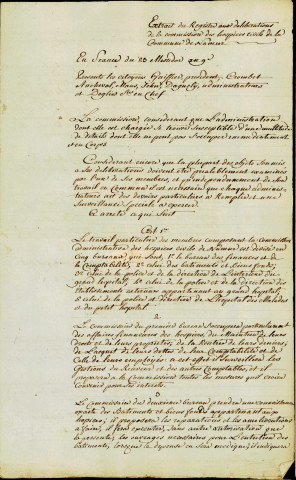 Extrait du Registre aux deliberations
de la commission des hospices civils de la
Commune de Namur
En Seance du 28 Messidor an 9e
Presents les citoyens president,
administrateurs
en Chef
La commission, considerant que l'administration
dont elle est chargée se trouve susceptible d'une multitude
de details dont elle ne peut pas s'occuper immediatement
en Corps
Considerant encore que la plupart des objets soumis
a ses deliberations doivent être prealablement examinés
par l'un de ses membres, et qu'independamment de leur
travail en commun il est necessaire que chaque adminis-
trateur ait des devoirs particuliers a remplir et une
Surveillance speciale a exercer
a arreté ce qui suit
Art 1er
Le travail particulier des membres composant la Commission
d'administration des hospices civils de Namur est divisé en
Cinq bureaux qui sont, 1° le bureau des finances et de
la Comptabilité, 2° celui des batiments et biens fonds,
3° celui de la police et de la direction de l'interieur du
grand hopital, 4° celui de la police et de la direction des
Etablissements externes appartenant au grand hopital,
5° celui de la police et direction de l'hopital des malades
et du petit hopital
2.
Le Commissaire du premier bureau s'occupera particulierement
des affaires financieres des hospices, du maintien de leurs
droits et de leurs proprietés, de la Rentrée de leurs deniers,
de l'acquit de leurs dettes, de leur Comptabilité et de
Celle de leurs employés; a cet effet il surveillera les
Gestions du Receveur et des autres Comptables, et il
proposera a la Commission toutes les mesures qu'il croira
Convenir pour cet interêt.
3
Le Commissaire du deuxieme bureau prendra une connaissance
exacte des batiments et biens fonds appartenant aux
hospices; il proposera les reparations et les ameliorations
a faire, il fera executer, sans autre autorisation que
la presente, les ouvrages necessaires pour l'entretien des
batiments, lorsque la depense en sera modique; il indiquera